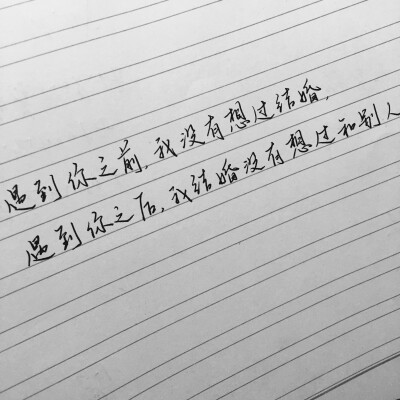 遇到你之前,我没有想过结婚,
遇到你之后,我结婚没有想过和别人